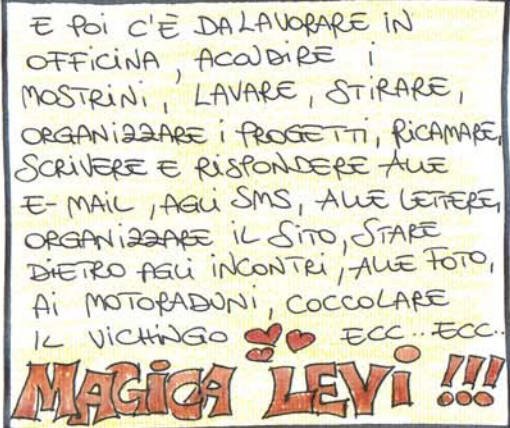 E POI C'È DA LAVORARE IN
OFFICINA, ACCUDIRE I
MOSTRINI, LAVARE, STIRARE,
ORGANIZZARE I PROGETTI, RICAMARE,
SCRIVERE E RISPONDERE ALLE
E-MAIL, AGLI SMS, ALLE LETTERE,
ORGANIZZARE IL SITO, STARE
DIETRO AGLI INCONTRI, ALLE FOTO,
AI MOTORADUNI, COCCOLARE
IL VICHINGO ECC... ECC..
MAGICA LEVI !!!